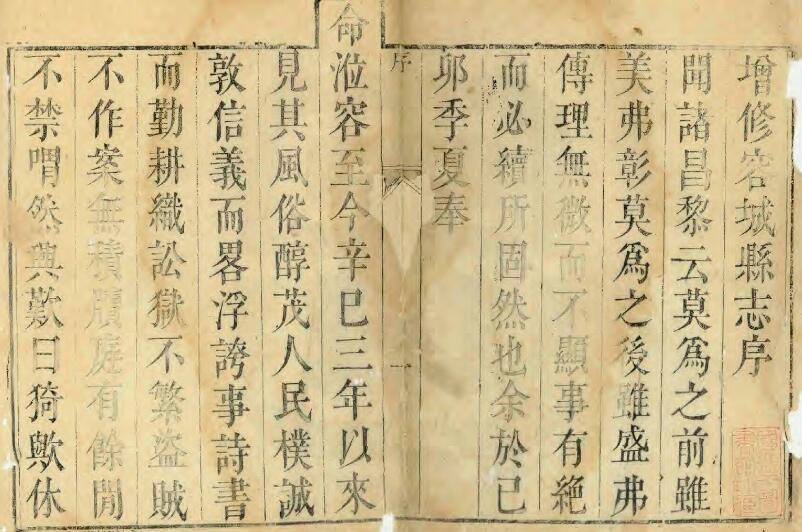 增修容城縣志序
聞諸昌黎云莫爲之前雖
美弗彰莫爲之後雖盛弗
傳理無微而不顯事有絕
而必續所固然也余於已
卯季夏奉
序
一
命涖容至今辛巳三年以來
見其風俗醇茂人民樸誠
敦信義而畧浮誇事詩書
而勤耕織訟獄不繁盜賊
不作案無積牘庭有餘閒
不禁喟然興歎曰猗歟休